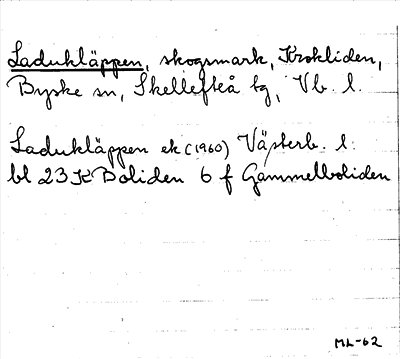 Ladukläppen, skogsmark, Krokliden,
Byske sn, Skellefteå tg, Vb. l.
Ladukläppen ek (1960) Västerb. l.
bl 23 K Boliden 6 f Gammelboliden
ML-62